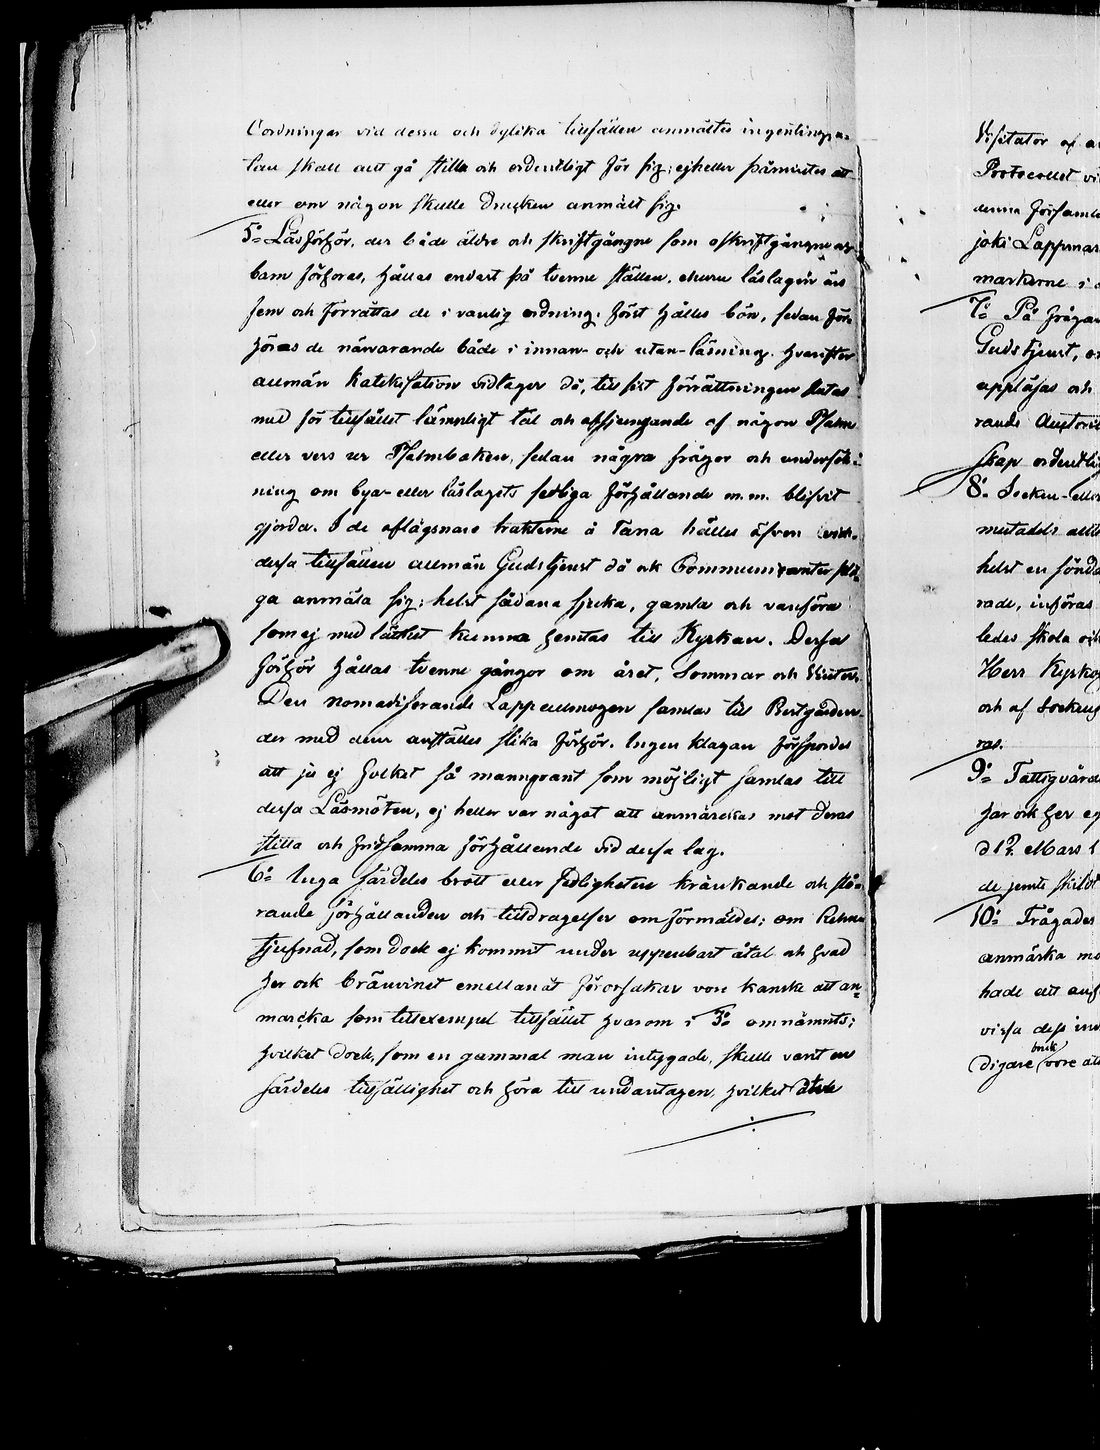 Oordningar vid dessa och dylika tillfällen anmältes ingenting, u-
tan skall allt gå stilla och ordentligt för sig; ej heller påmintes att
eller om någon skulle drucken anmält sig.
5:o Läsförhör, der både äldre och skriftgångne som oskriftgångne
barn förhöras, hållas endast på tvenne ställen, ehuru läslagen äro
fem och förrättas de i vanlig ordning. Först hålles bön, sedan för-
höras de närvarande både i innan- och utan-läsning. Hvarefter
allmän Katekisation vidtager då, till sist förrättningen slutas
med för tillfället lämpligt tal och afsjungande af någon Psalm
eller vers ur Psalmboken, sedan några frågor och undersök-
ning om bya- eller läslagets sedliga förhållande m.m. blifvit
gjorda. I de aflägsnare trakterne å Tana hålles äfven vid
dessa tillfällen allmän Gudstjenst då ock Communicanter plä-
ga anmäla sig; helst sådana sjuka, gamla och vanföra
som ej med lätthet kunna hemtas till Kyrkan. Dessa
förhör hållas tvenne gånger om året, Sommar och Vinter.
Den nomadiserande Lappallmogen samlas till Prestgården
der med dem anställes slika förhör. Ingen klagan försports
att ju ej folket så manngrant som möjligt samlas till
dessa Läsmöten, ej heller var något att anmärckas mot deras
stilla och fridsamma förhållande vid dessa lag.
6:o Inga särdeles brott eller sedligheten kränkande och stö-
rande förhållanden och tilldragelser omförmäldes; om Rehn
tjufnad, som dock ej kommit under uppenbart åtal och hvad
her ock bränvinet emellanåt förorsakar vore kanske att an-
marcka som till exempel tillfället hvarom i 3:o omnämnts;
hvilket dock, som en gammal man intygade, skulle varit en
särdeles tillfällighet och höra till undantagen, hvilket
Visitator af
Protocollet
denna Församl
joki Lappmar
markerne i
7:o På frågan
Gudstjenst,
uppläsas och
rande Auctori
skap ordentli
8:o Socken- eller
mestadels
helst en sönda
rade, införas
ledes skola och
Herr Kyrko
och af Socken
ras.
9:o Fattigvård
har ock her
d 12 Mars
de jemte
10:o Frågades
anmärka
hade att
vissa dess
bruk
digare vore